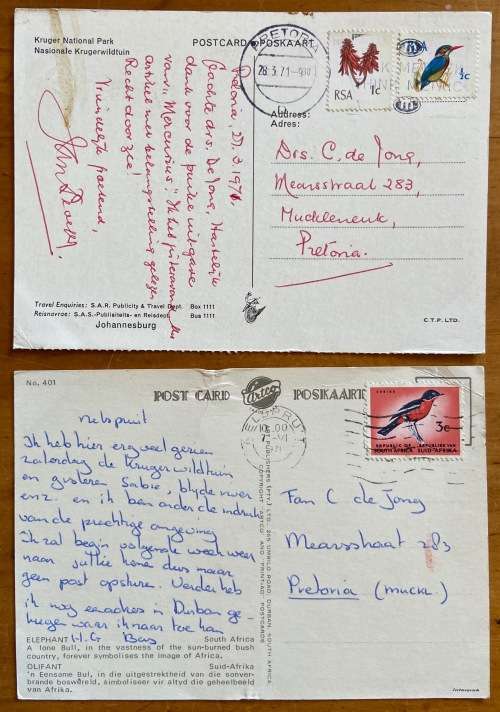 Kruger National Park
Nasionale Krugerwildtuin
POSTCARD POSKAART
PRETORIA
28.3.71
RSA 1c
RSA ½c
Pretoria, 27.3.1971.
Geachte drs. De Jong, Hartelijk
dank voor de puike uitgave
van "Mercurius". Ik het
artikel met belangstelling gelezen
Recht door zee!
Vriendelijk groetend,
Address:
Adres:
Drs. C. de Jong,
Mearsstraat 283,
Muckleneuk,
Pretoria.
Travel Enquiries: S.A.R. Publicity & Travel Dept. Box 1111
Reisnavrae: S.A.S.-Publisiteits- en Reisdept. Bus 1111
Johannesburg
C.T.P. LTD.
No. 401
POST CARD Artco POSKAART
NELSPRUIT
3c
REPUBLIC OF SOUTH AFRICA
REPUBLIEK VAN SUID-AFRIKA
nelspruit
Ik heb hier erg veel gezien
zaterdag de Krugerwildtuin
en gisteren Sabie, blyde rivier
enz. en ik ben onder de indruk
van de prachtige omgeving
Ik zal begin volgende week weer
naar jullie komen dus maar
geen post opsturen. Verder heb
ik nog een adres in Durban ge-
kregen waar ik naar toe kan
H.G Bas
Fan C de Jong
Mearsstraat 283
Pretoria (muck.)
ART PUBLISHERS (PTY.) LTD. 265 UMBILO ROAD, DURBAN, SOUTH AFRICA
COPYRIGHT ARTCO AND "PRINTAD" POSTCARDS
ELEPHANT South Africa
A lone Bull, in the vastness of the sun-burned bush
country, forever symbolises the image of Africa.
OLIFANT Suid-Afrika
'n Eensame Bul, in die uitgestrektheid van die sonver-
brande boswêreld, simboliseer vir altyd die geheelbeeld
van Afrika.